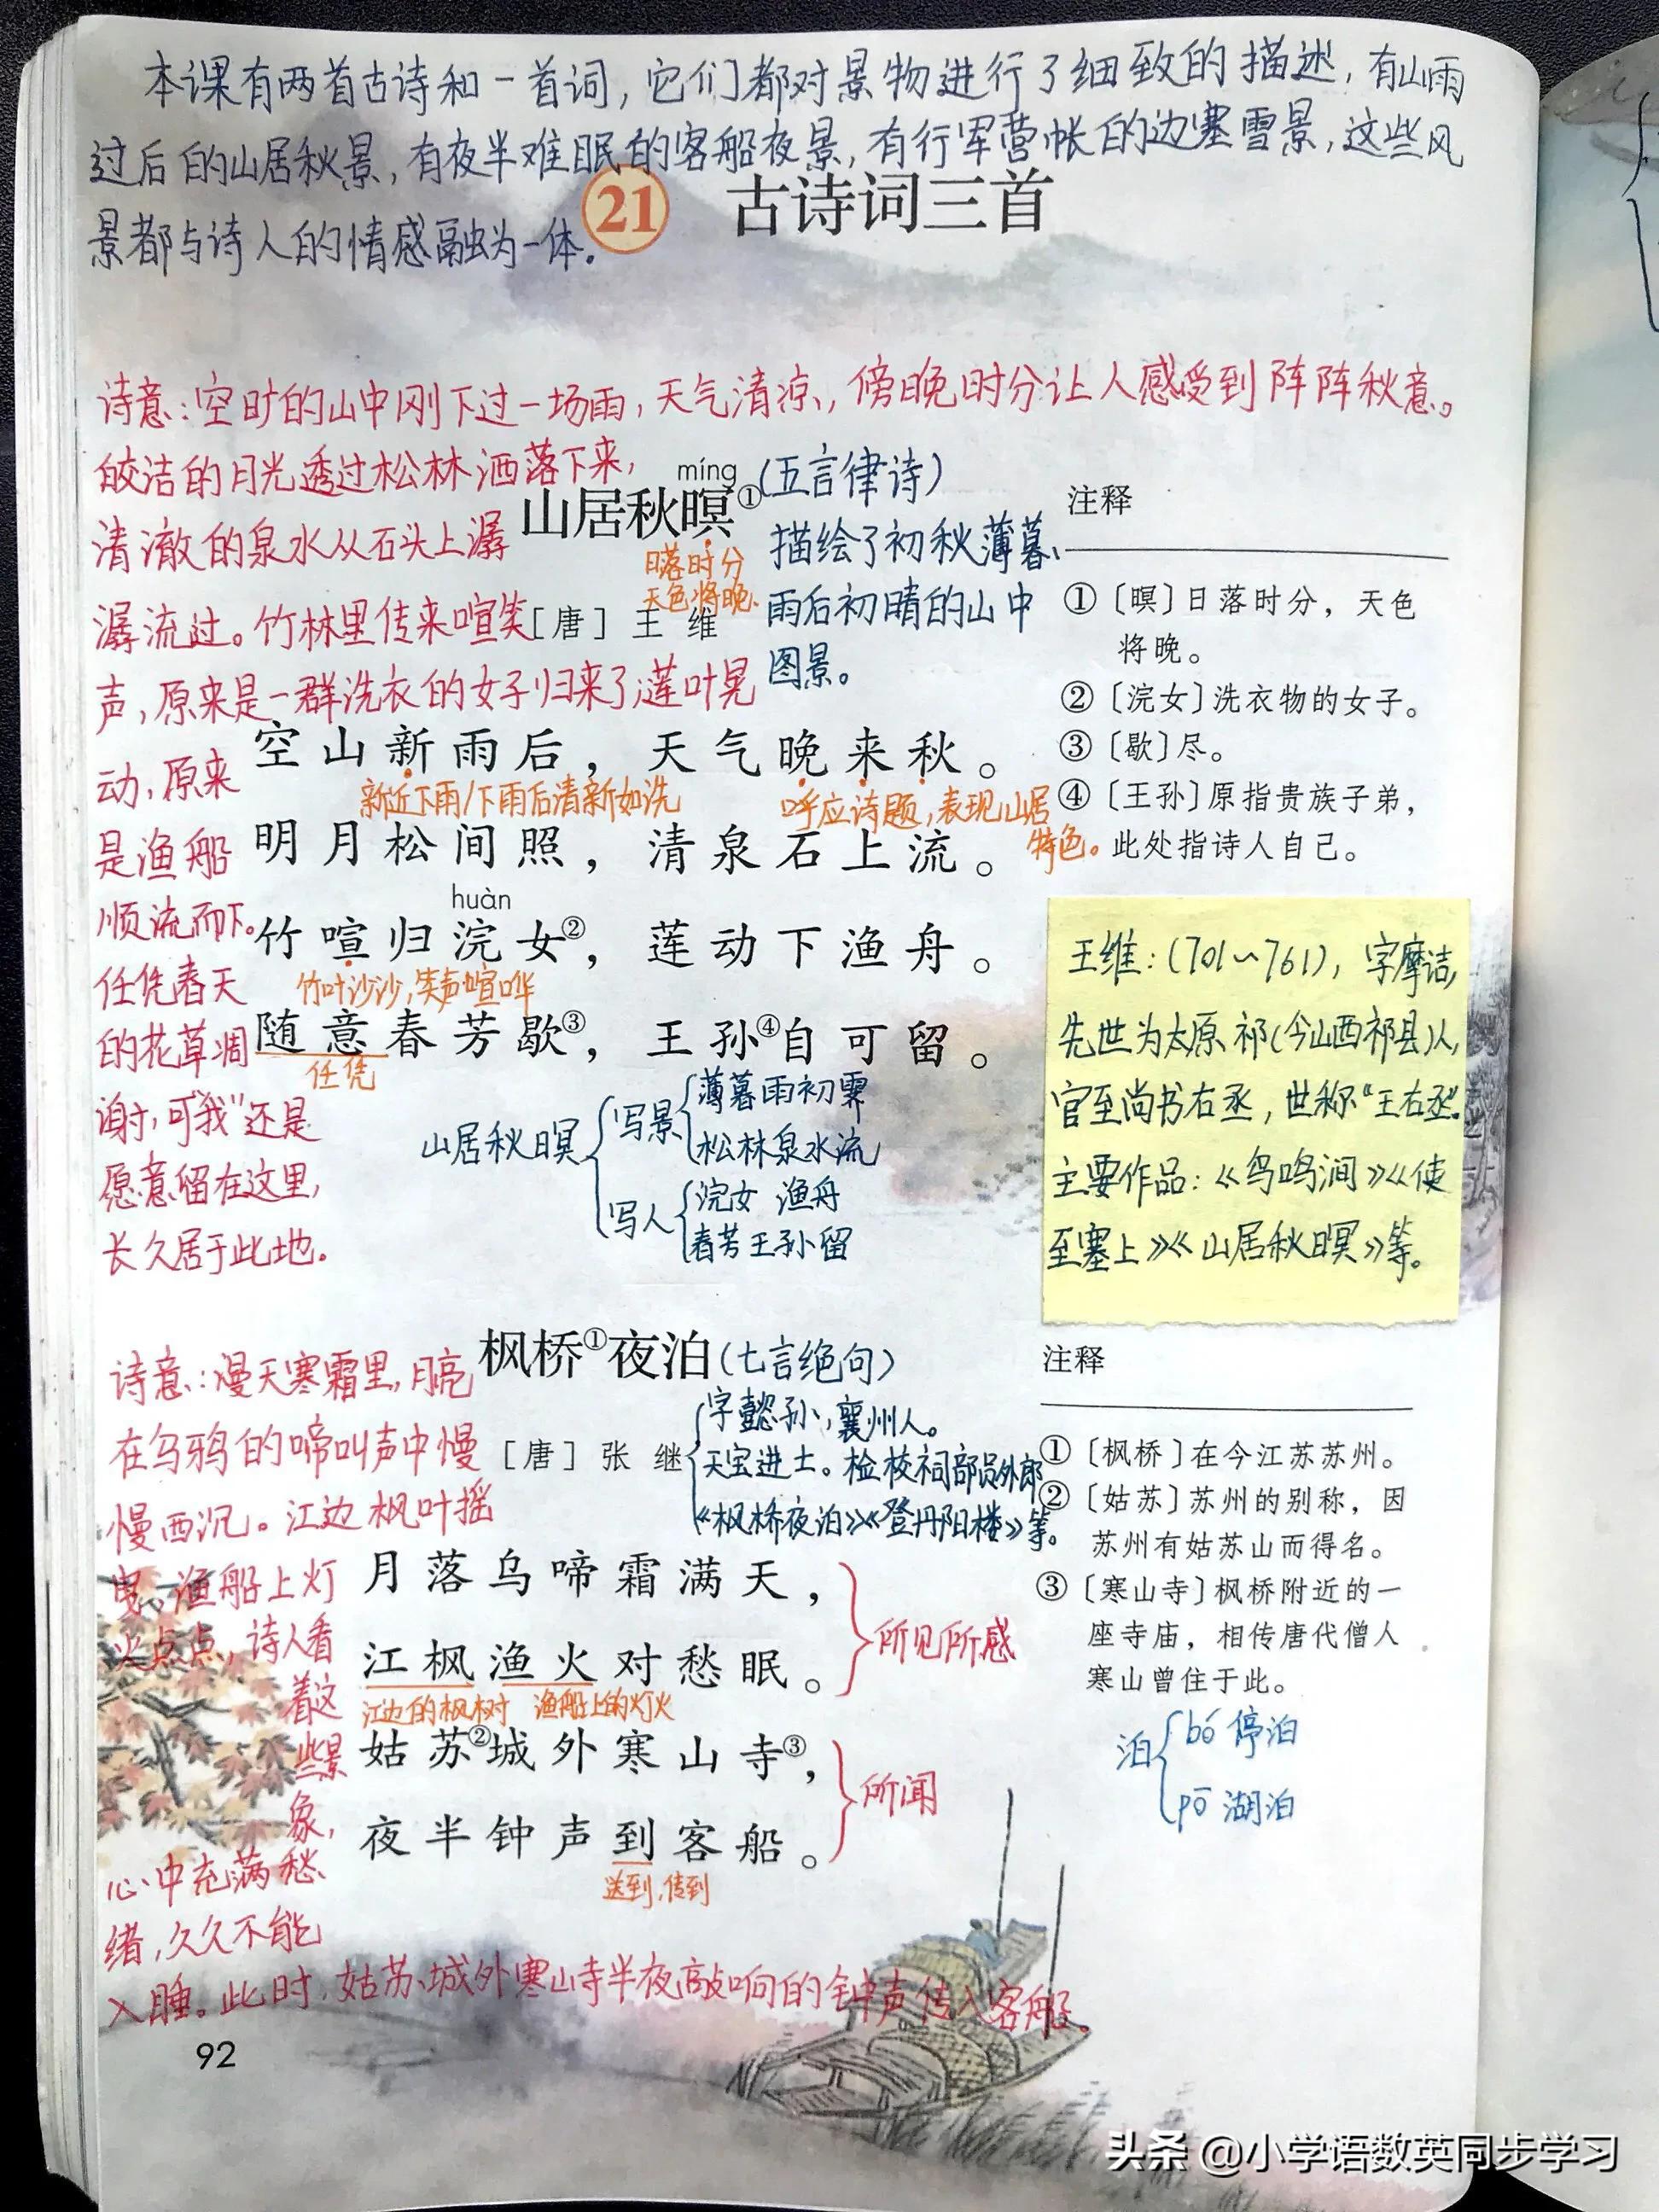 本课有两首古诗和一首词，它们都对景物进行了细致的描述，有山雨
过后的山居秋景，有夜半难眠的客船夜景，有行军营帐的边塞雪景，这些风
景都与诗人的情感融为一体。
21 古诗词三首
诗意：空旷的山中刚下过一场雨，天气清凉，傍晚时分让人感受到阵阵秋意。
皎洁的月光透过松林洒落下来，
清澈的泉水从石头上潺
潺流过。竹林里传来喧笑
声，原来是一群洗衣的女子归来了；莲叶晃
动，原来
是渔船
顺流而下。
任凭春天
的花草凋
谢，可“我”还是
愿意留在这里，
长久居于此地。
míng
山居秋暝①（五言律诗）
日落时分
天色将晚
[唐] 王维
描绘了初秋薄暮、
雨后初晴的山中
图景。
空山新雨后，天气晚来秋。
新近下雨/下雨后清新如洗
呼应诗题，表现山居
特色。
明月松间照，清泉石上流。
huàn
竹喧归浣女②，莲动下渔舟。
竹叶沙沙，笑声喧哗
随意春芳歇③，王孙④自可留。
任凭
山居秋暝
写景
薄暮雨初霁
松林泉水流
写人
浣女 渔舟
春芳王孙留
注释
①〔暝〕日落时分，天色
将晚。
②〔浣女〕洗衣物的女子。
③〔歇〕尽。
④〔王孙〕原指贵族子弟，
此处指诗人自己。
王维：(701～761)，字摩诘，
先世为太原祁(今山西祁县)人，
官至尚书右丞，世称“王右丞”。
主要作品：《鸟鸣涧》《使
至塞上》《山居秋暝》等。
枫桥①夜泊（七言绝句）
[唐] 张继
字懿孙，襄州人。
天宝进士。检校祠部员外郎
《枫桥夜泊》《登丹阳楼》等。
诗意：漫天寒霜里，月亮
在乌鸦的啼叫声中慢
慢西沉。江边枫叶摇
曳，渔船上灯
火点点，诗人看
着这
些景
象，
心中充满愁
绪，久久不能
入睡。此时，姑苏城外寒山寺半夜敲响的钟声传入客船。
月落乌啼霜满天，
江枫渔火对愁眠。
所见所感
江边的枫树 渔船上的灯火
姑苏②城外寒山寺③，
夜半钟声到客船。
所闻
送到，传到
注释
①〔枫桥〕在今江苏苏州。
②〔姑苏〕苏州的别称，因
苏州有姑苏山而得名。
③〔寒山寺〕枫桥附近的一
座寺庙，相传唐代僧人
寒山曾住于此。
泊
bó 停泊
pō 湖泊
92
头条 @小学语数英同步学习